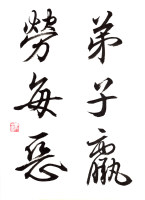 弟子贏
勞每惡